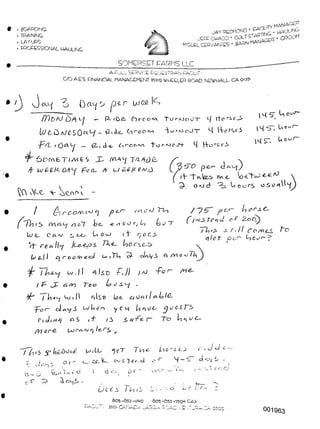 • BOARDING
• TRAINING
• LAYUPS
• PROFESSIONAL HAULING
JAY REDMOND • FACILITY MANAGER
COLT STARTING • HAULING
MIGUEL CERVANTES • BARN MANAGER • GROOM
SOMERSET FARMS LLC
A FULL SERVICE EQUESTRIAN FACILITY
FINANCIAL MANAGEMENT WHEELER ROAD NEWHALL CA
1) Jay 3 Days per week,
MONDAY - Ride Groom Turnout 4 Horses 145, hour
WEDNESDAY - Ride Groom turnout 4 Horses 145, hour
FRIDAY - Ride Groom Turnout 4 Horses 145, hour
* Sometimes I may Trade
A WEEKDAY For A WEEKEND
(350 per day)
(it takes me between
2 and 3 hours usually)
Mike & Jenni -
1 Grooming per month 175 per horse
(This may not be enough but (instead of 200)
We can see how it goes This still comes to
it really keeps The horses alot per hour?
well groomed with 2 days a month)
* They will also fill IN for me
IF I am Too busy.
* They will also be available
For days when you have guests
riding as it is safer To have
more wranglers,
This schedule will get The horses ridden
3 days per week instead of 4-5 days.
1 day per month instead
of 2 days.
Does This better?
001963